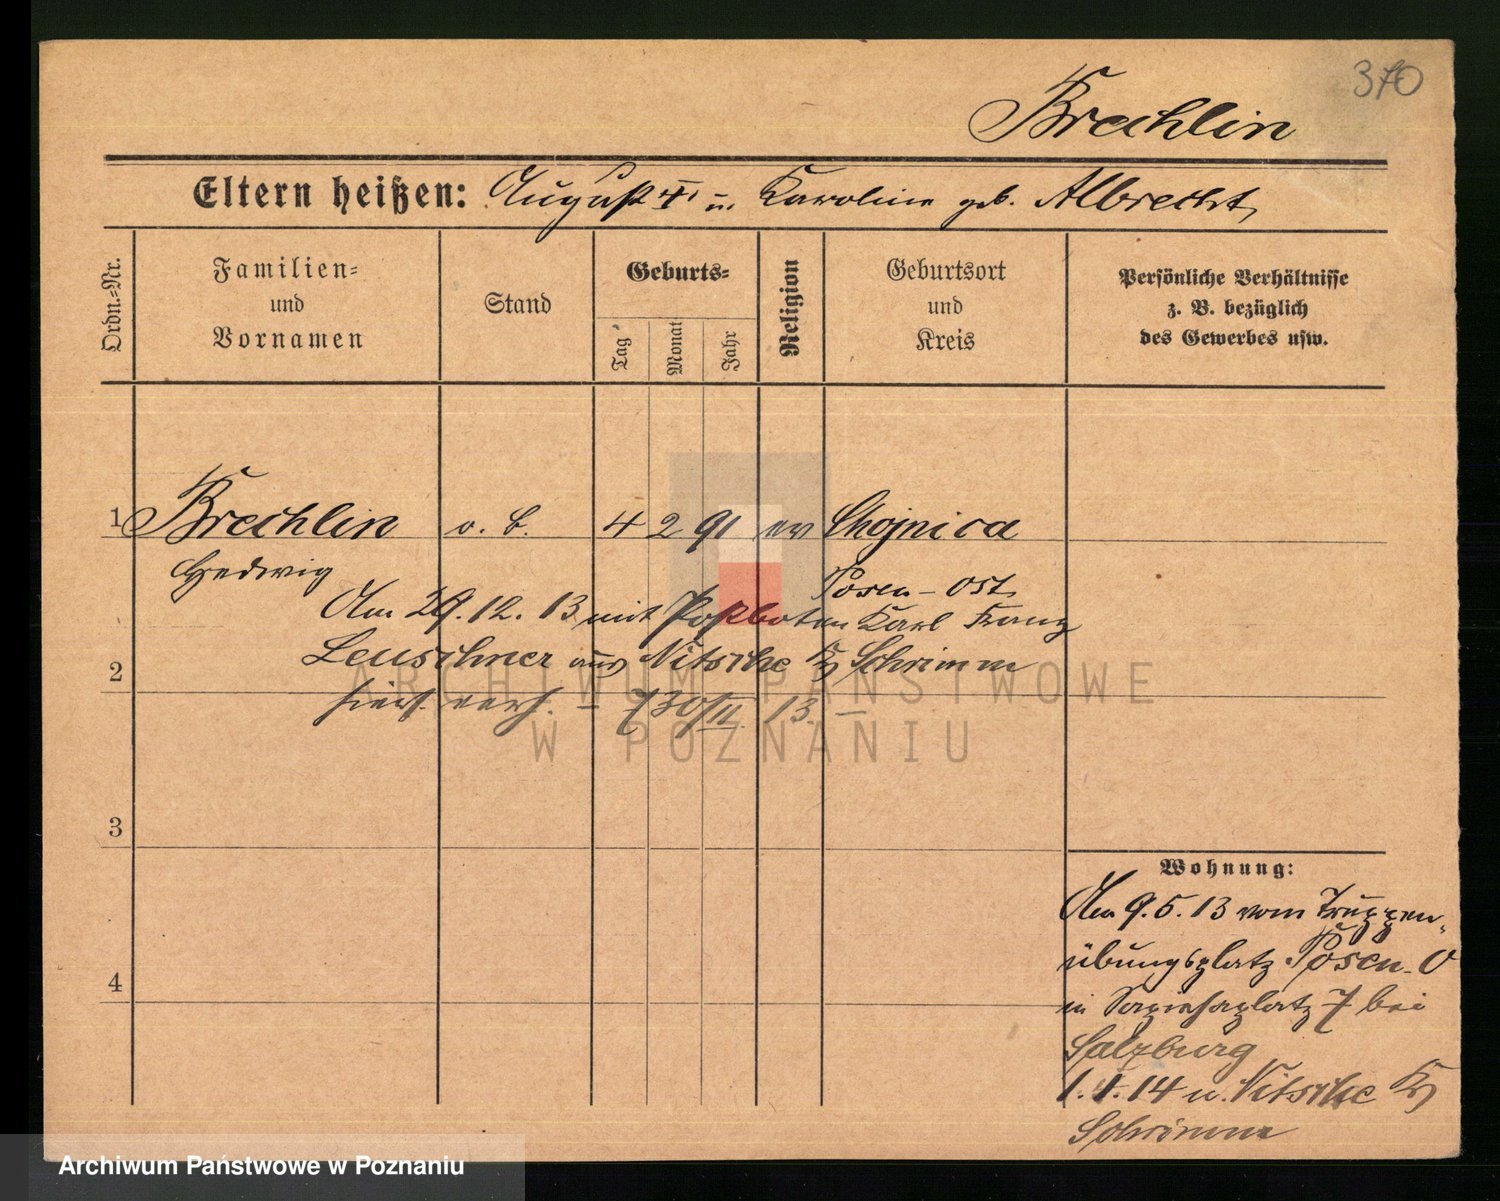 370
Brechlin
Eltern heißen: August u. Karoline geb. Albrecht
Ordn.=Nr.
Familien=
und
Vornamen
Stand
Geburts=
Tag
Monat
Jahr
Religion
Geburtsort
und
Kreis
Persönliche Verhältnisse
z. B. bezüglich
des Gewerbes usw.
1 Brechlin o. B. 4 2 91 ev Chojnica
Hedwig
Posen-Ost
Am 29.12.13 mit Postboten Karl Franz
Leuschner aus Nitsche Kr Schrimm
2
hier verh. –
13. –
3
4
Wohnung:
Am 9.5.13 vom Truppen-
übungsplatz Posen-O
n Sapiehaplatz 7 bei
Salzburg
1.1.14 n. Nitsche Kr
Schrimm
ARCHIWUM PAŃSTWOWE
W POZNANIU
Archiwum Państwowe w Poznaniu